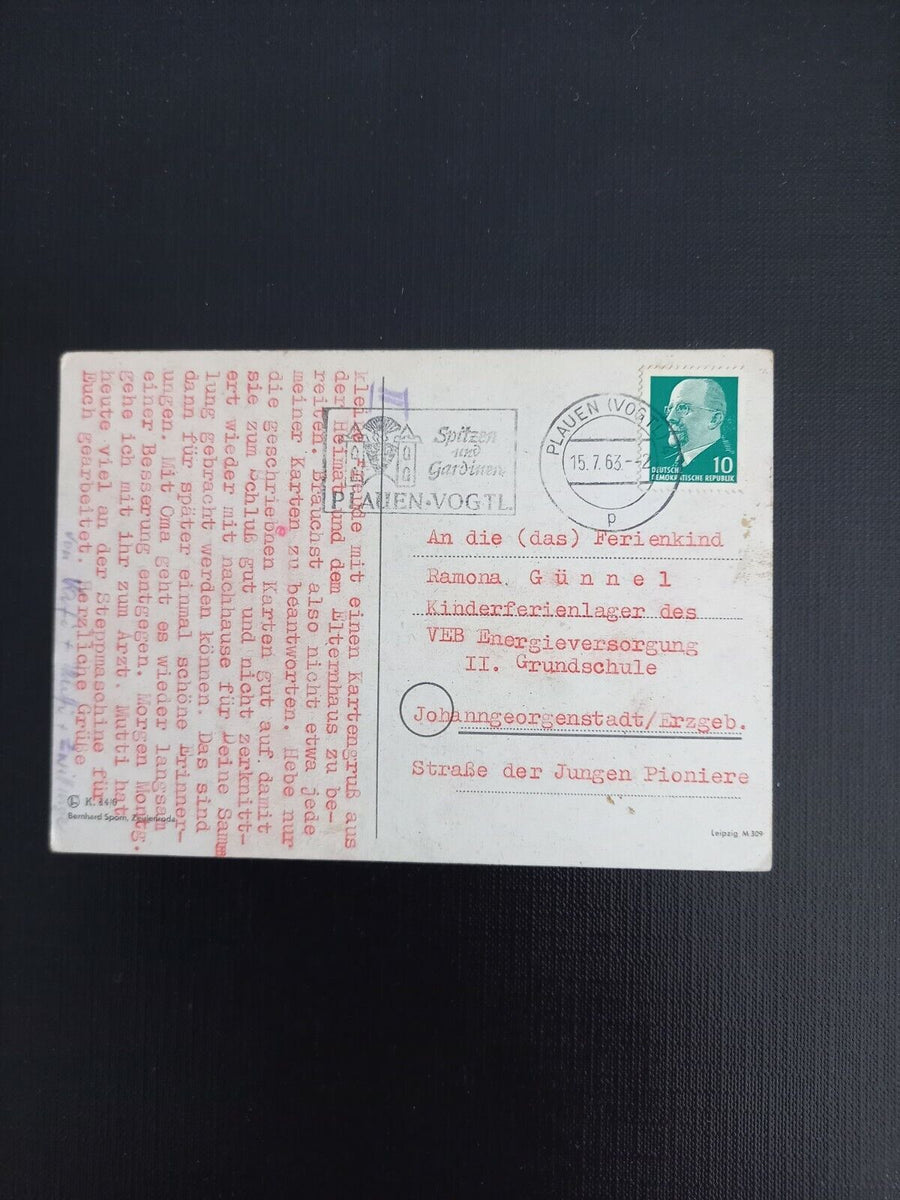 III
kleine Freude mit einen Kartengruß aus
der Heimat und dem Elternhaus zu be-
reiten. Brauchst also nicht etwa jede
meiner Karten zu beantworten. Hebe nur
die geschriebnen Karten gut auf, damit
sie zum Schluß gut und nicht zerknitt-
ert wieder mit nachhause für Deine Samm
lung gebracht werden können. Das sind
dann für später einmal schöne Erinner-
ungen. Mit Oma geht es wieder langsam
einer Besserung entgegen. Morgen Montg.
gehe ich mit ihr zum Arzt. Mutti hat
heute viel an der Steppmaschine für
Euch gearbeitet. Herzliche Grüße
K. 44/8
Bernhard Sporn, Zeulenroda
Spitzen
und
Gardinen
PLAUEN·VOGTL.
PLAUEN (VOGTL)
15.7.63
p
DEUTSCHE
DEMOKRATISCHE REPUBLIK
10
An die (das) Ferienkind
Ramona Günnel
Kinderferienlager des
VEB Energieversorgung
II. Grundschule
Johanngeorgenstadt/Erzgeb.
Straße der Jungen Pioniere
Leipzig M 309